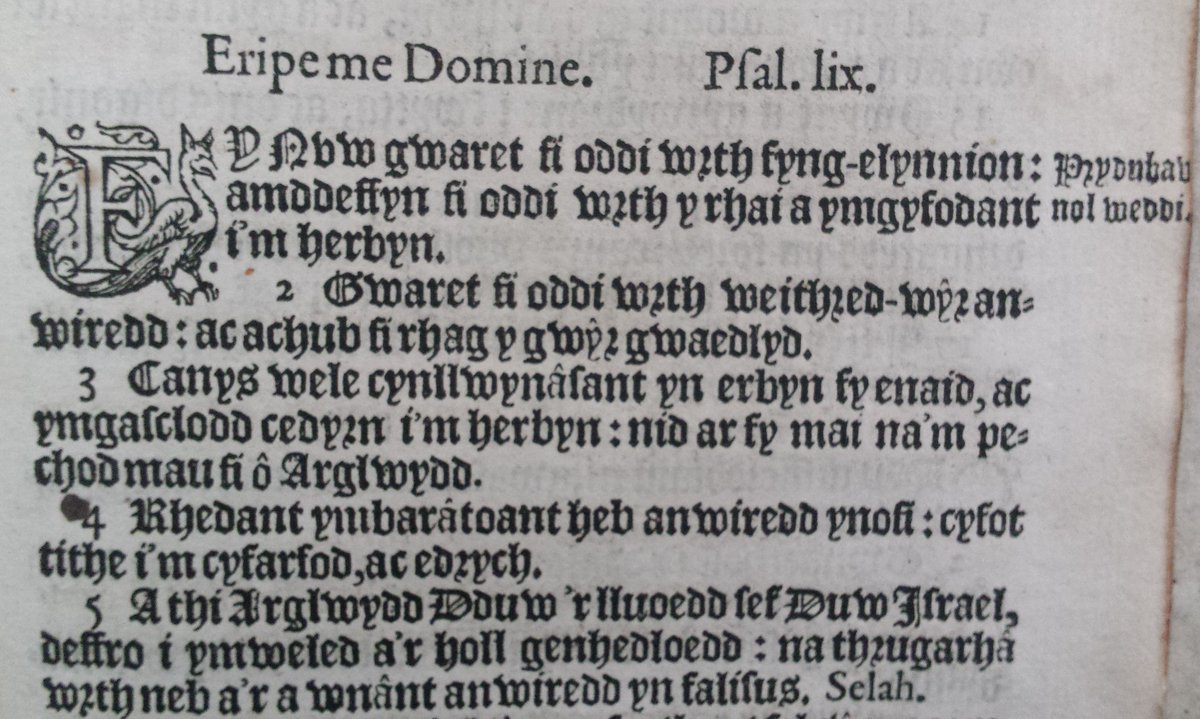 Eripe me Domine. Pſal. lix.
FY Nvw gwaret fi oddi wꝛth fyng-elynnion: Pꝛydnhav
amddeffyn fi oddi wꝛth y rhai a ymgyfodant nol weddi.
i'm herbyn.
2 Gwaret fi oddi wꝛth weithꝛed-wŷꝛ an⸗
wiredd: ac achub fi rhag y gwŷꝛ gwaedlyd.
3 Canys wele cynllwynâſant yn erbyn fy enaid, ac
ymgaſclodd cedyꝛn i'm herbyn: nid ar fy mai na'm pe⸗
chod mau fi ô Arglwydd.
4 Rhedant ymbarâtoant heb anwiredd ynofi: cyfot
tithe i'm cyfarfod, ac edꝛych.
5 A thi Arglwydd Dduw 'r lluoedd ſef Duw Iſrael,
deffro i ymweled a'r holl genhedloedd: na thꝛugarhâ
wꝛth neb a'r a wnânt anwiredd yn faliſus. Selah.